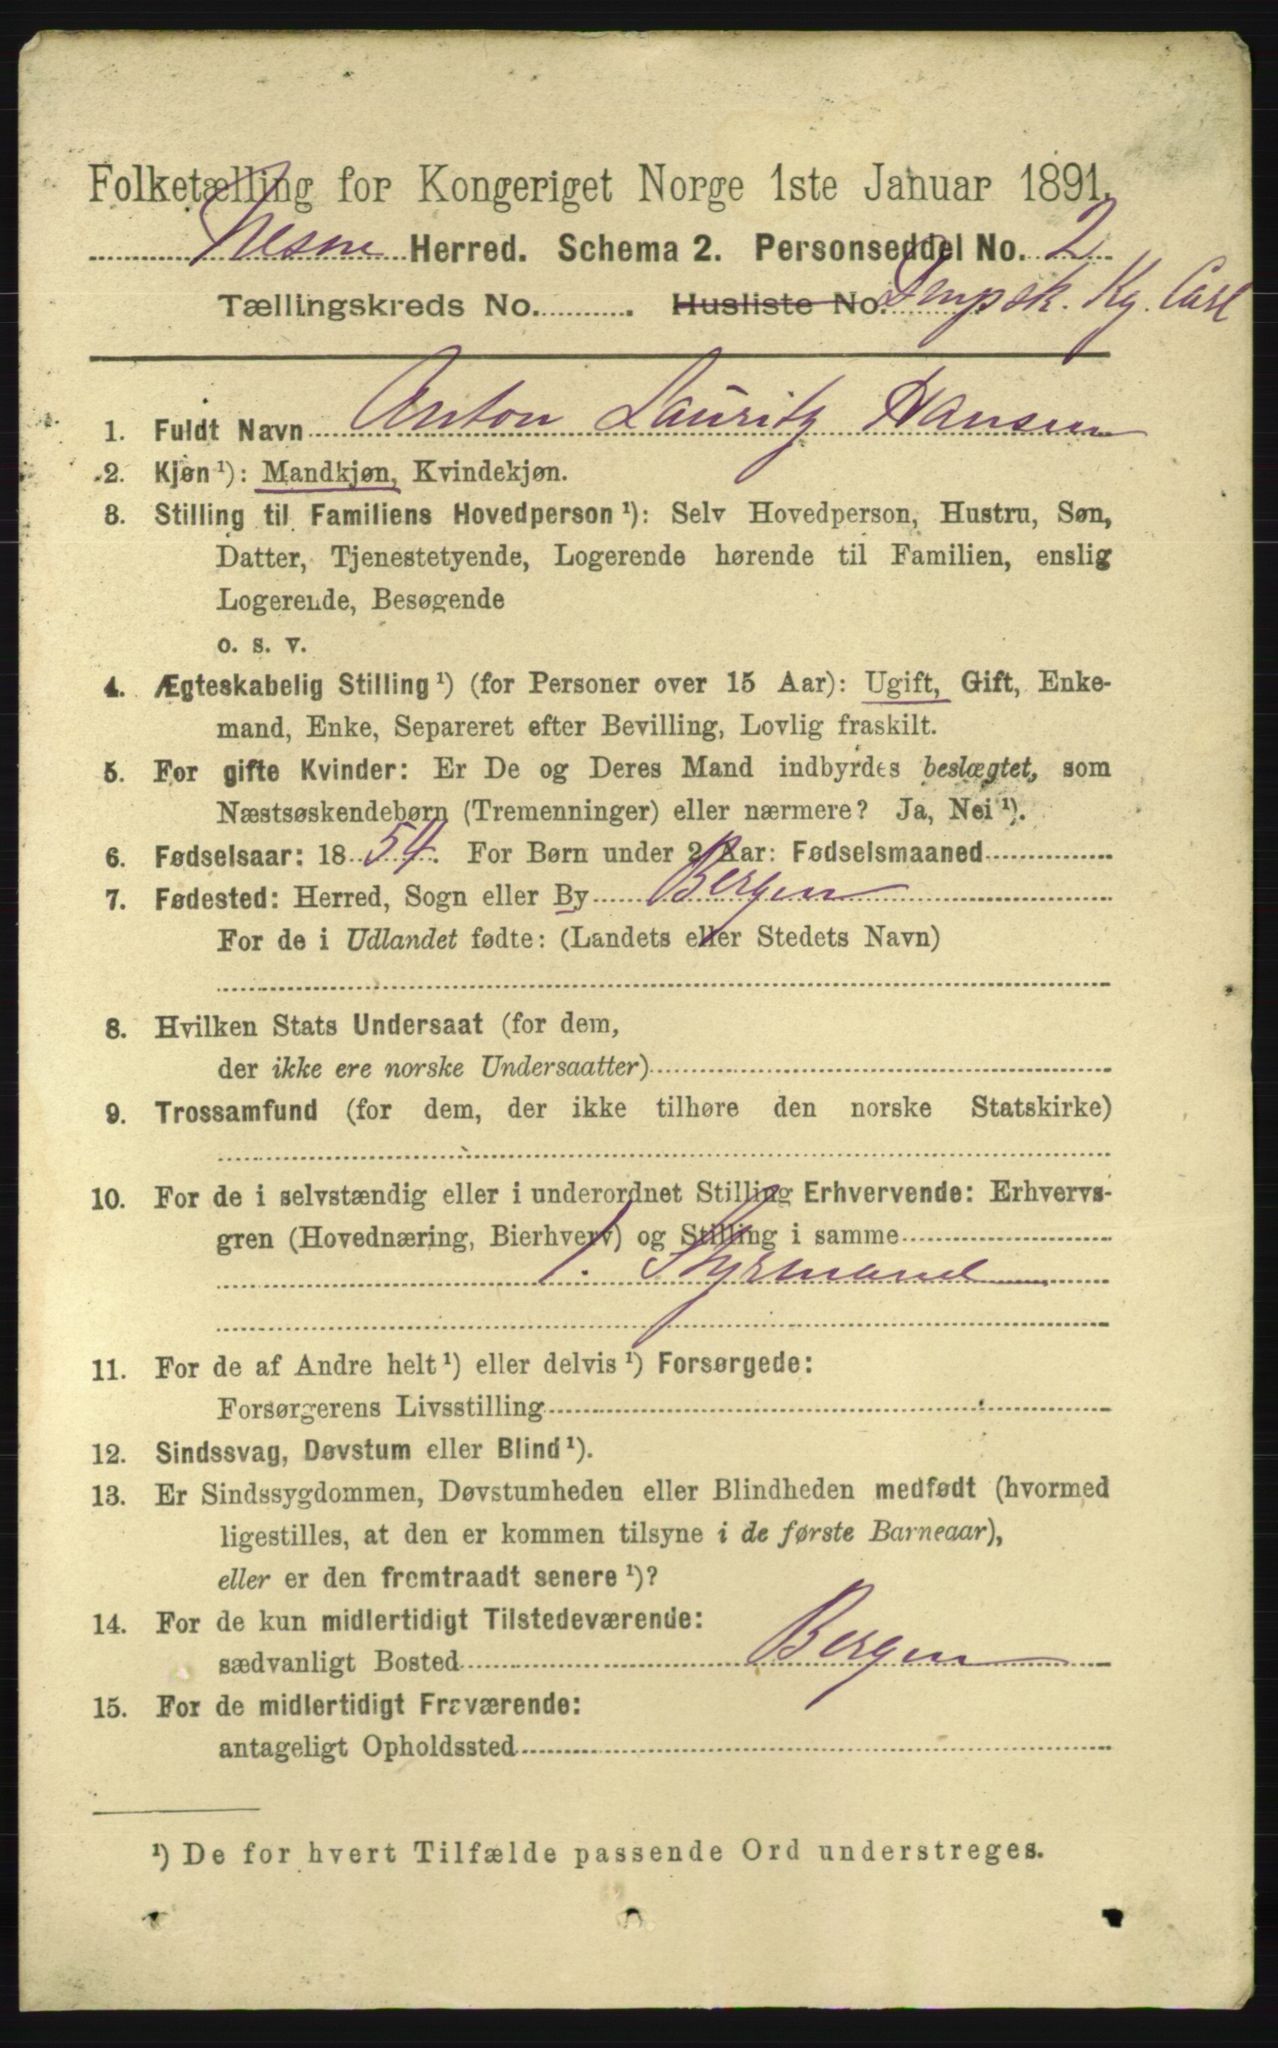 Folketælling for Kongeriget Norge 1ste Januar 1891.
Nesne Herred. Schema 2. Personseddel No. 2
Tællingskreds No. ........... Husliste No. Dmpsk. Kg. Carl
1. Fuldt Navn Anton Lauritz Hansen
2. Kjøn¹): Mandkjøn, Kvindekjøn.
3. Stilling til Familiens Hovedperson¹): Selv Hovedperson, Hustru, Søn,
Datter, Tjenestetyende, Logerende hørende til Familien, enslig
Logerende, Besøgende
o. s. v.
4. Ægteskabelig Stilling¹) (for Personer over 15 Aar): Ugift, Gift, Enke-
mand, Enke, Separeret efter Bevilling, Lovlig fraskilt.
5. For gifte Kvinder: Er De og Deres Mand indbyrdes beslægtet, som
Næstsøskendebørn (Tremenninger) eller nærmere? Ja, Nei¹).
6. Fødselsaar: 18 54. For Børn under 2 Aar: Fødselsmaaned
7. Fødested: Herred, Sogn eller By Bergen
For de i Udlandet fødte: (Landets eller Stedets Navn)
8. Hvilken Stats Undersaat (for dem,
der ikke ere norske Undersaatter)
9. Trossamfund (for dem, der ikke tilhøre den norske Statskirke)
10. For de i selvstændig eller i underordnet Stilling Erhvervende: Erhvervs-
gren (Hovednæring, Bierhverv) og Stilling i samme
1. Styrmand
11. For de af Andre helt¹) eller delvis¹) Forsørgede:
Forsørgerens Livsstilling
12. Sindssvag, Døvstum eller Blind¹).
13. Er Sindssygdommen, Døvstumheden eller Blindheden medfødt (hvormed
ligestilles, at den er kommen tilsyne i de første Barneaar),
eller er den fremtraadt senere¹)?
14. For de kun midlertidigt Tilstedeværende:
sædvanligt Bosted Bergen
15. For de midlertidigt Fraværende:
antageligt Opholdssted
¹) De for hvert Tilfælde passende Ord understreges.